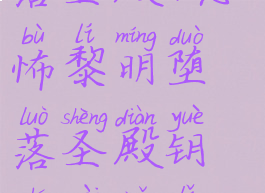 bù lí míng duò
怖黎明堕
luò shèng diàn yuè
落圣殿钥